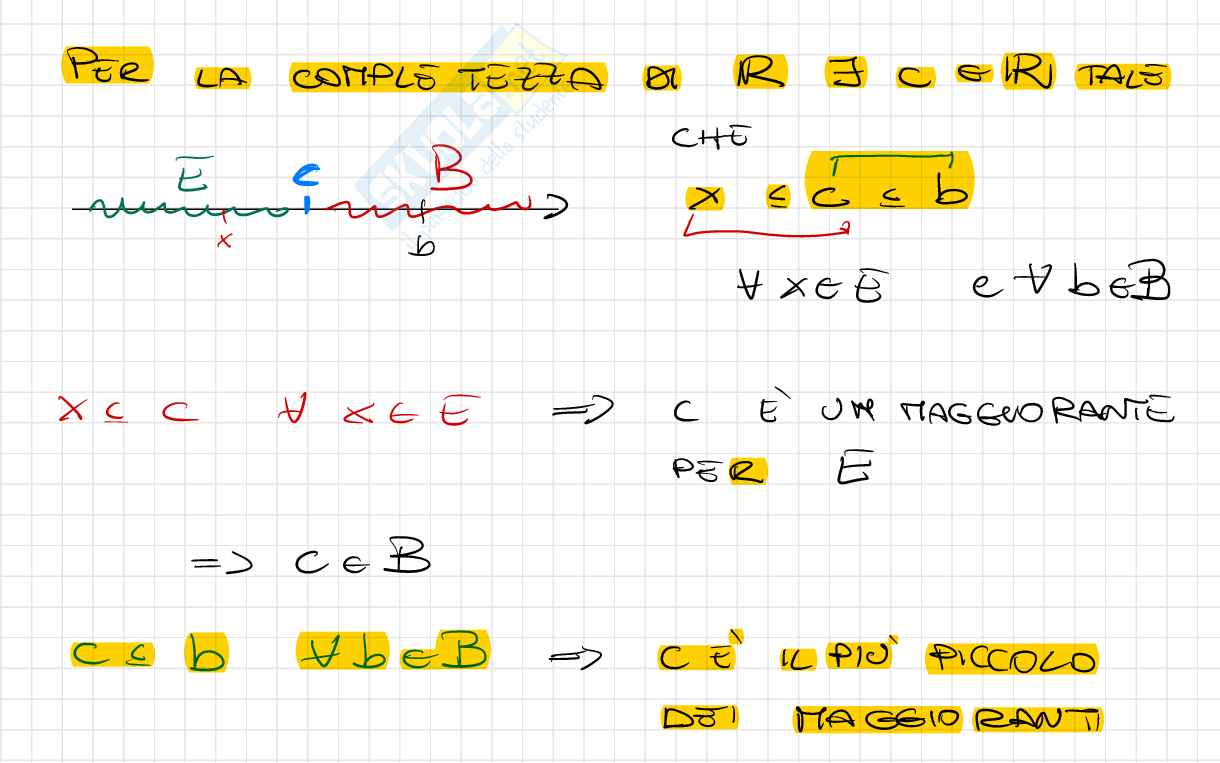 PER LA COMPLETEZZA DI ℝ ∃ C ∈ ℝ TALE
CHE
E C B
x ≤ c ≤ b
x b
∀ x ∈ E e ∀ b ∈ B
x ≤ c ∀ x ∈ E ⇒ C È UN MAGGIORANTE
PER E
=> C ∈ B
c ≤ b ∀ b ∈ B ⇒ C È IL PIÙ PICCOLO
DEI MAGGIORANTI
SKUOLA.net